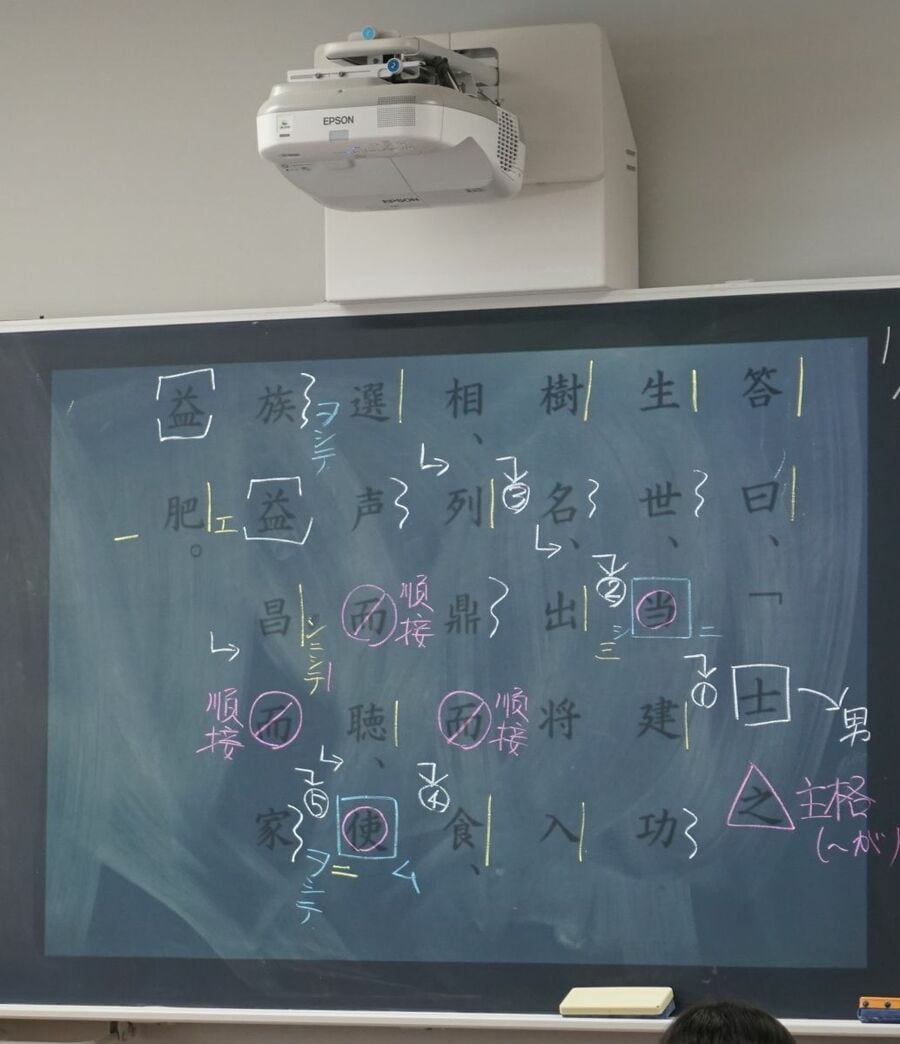 EPSON
EPSON
答曰、「士之
男
主格
(〜が)
生世、当建功
①
二
樹名、出将入
②
三
相、列鼎而食、
③
順接
選声而聴、使
④
順接
ム
族益昌而家
ヲシテ
⑤
ヲシテ
二
益肥。
エ
一
順接